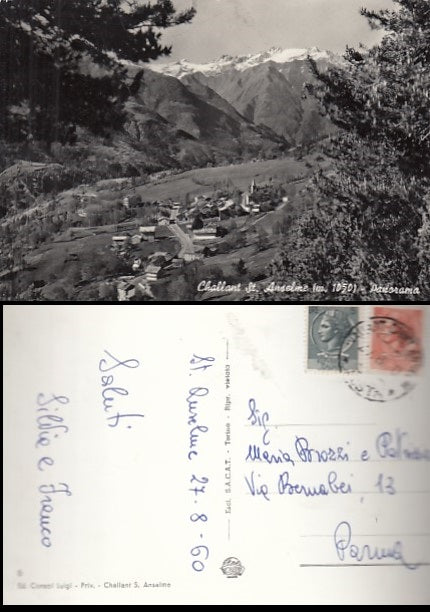 Challant St. Anselme (m. 1050) - Panorama
St. Anselme 27-8-60
Saluti
Silvia e Franco
Escl. S.A.C.A.T. - Torino - Ripr. vietata
Sig.
Maria Brozzi e
Via Bernabei, 13
Parma
Ed. Consol Luigi - Priv. - Challant S. Anselmo